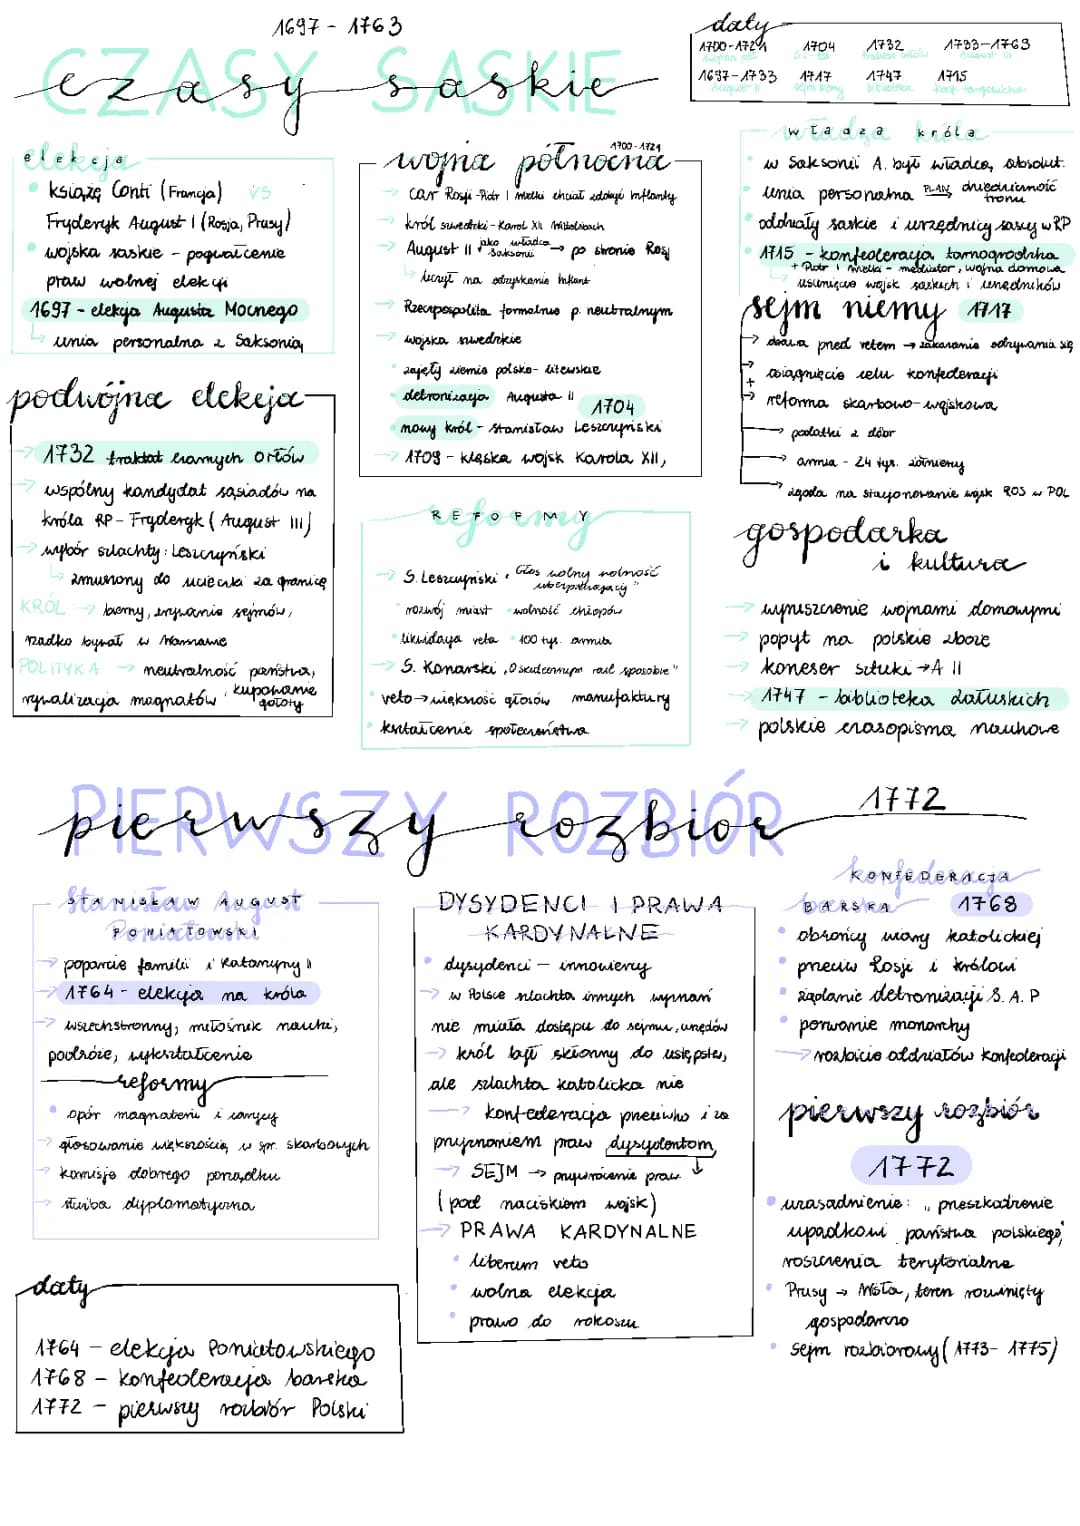 1697 - 1763
CZASY SASKIE
czasy saskie
daty
1700-1721 1704 1732 1733-1763
1697-1733 1717 1747 1715
August II sejm niemy biblioteka konf. tarnogrodzka
elekcja
książę Conti (Francja) vs
Fryderyk August I (Rosja, Prusy)
wojska saskie - pogwałcenie
praw wolnej elekcji
1697 - elekcja Augusta Mocnego
unia personalna z Saksonią
podwójna elekcja
1732 traktat czarnych orłów
wspólny kandydat sąsiadów na
króla RP - Fryderyk (August III)
wybór szlachty: Leszczyński
zmuszony do ucieczki za granicę
KRÓL → bierny, zrywanie sejmów,
rzadko bywał w Warszawie
POLITYKA → neutralność państwa,
rywalizacja magnatów, kupowanie
głosów
wojna północna 1700-1721
→ car Rosji - Piotr I Wielki chciał zdobyć Inflanty
→ król szwedzki - Karol XII Wittelsbach
→ August II jako władca Saksonii → po stronie Rosji
liczył na odzyskanie Inflant
→ Rzeczpospolita formalnie p. neutralnym
→ wojska szwedzkie
zajęły ziemie polsko-litewskie
detronizacja Augusta II 1704
nowy król - Stanisław Leszczyński
→ 1709 - klęska wojsk Karola XII,
reformy
REFORMY
→ S. Leszczyński „Głos wolny wolność
ubezpieczający"
rozwój miast wolność chłopów
likwidacja veta 100 tys. armia
→ S. Konarski „O skutecznym rad sposobie"
veto → większość głosów manufaktury
kształcenie społeczeństwa
władza króla
w Saksonii A. był władcą absolut.
unia personalna PLAN dziedziczność
tronu
oddziały saskie i urzędnicy sascy w RP
1715 - konfederacja tarnogrodzka
+ Piotr I Wielki - mediator, wojna domowa
usunięcie wojsk saskich i urzędników
sejm niemy 1717
→ obawa przed vetem → zakazanie odzywania się
→ osiągnięcie celu konfederacji
+
→ reforma skarbowo-wojskowa
→ podatki z dóbr
→ armia - 24 tys. żołnierzy
→ zgoda na stacjonowanie wojsk ROS w POL
gospodarka
i kultura
→ wyniszczenie wojnami domowymi
→ popyt na polskie zboże
→ koneser sztuki → A II
→ 1747 - biblioteka Załuskich
→ polskie czasopisma naukowe
PIERWSZY ROZBIÓR
pierwszy rozbiór 1772
Stanisław August
Poniatowski
STANISŁAW AUGUST
PONIATOWSKI
→ poparcie familii i Katarzyny II
→ 1764 - elekcja na króla
→ wszechstronny, miłośnik nauki,
podróże, wykształcenie
reformy
opór magnaterii i carycy
→ głosowanie większością w spr. skarbowych
→ komisje dobrego porządku
→ służba dyplomatyczna
daty
1764 - elekcja Poniatowskiego
1768 - konfederacja barska
1772 - pierwszy rozbiór Polski
DYSYDENCI I PRAWA
KARDYNALNE
dysydenci - innowiercy
→ w Polsce szlachta innych wyznań
nie miała dostępu do sejmu, urzędów
→ król był skłonny do ustępstw,
ale szlachta katolicka nie
→ konfederacja przeciwko i za
przyznaniem praw dysydentom
→ SEJM → przywrócenie praw
(pod naciskiem wojsk)
→ PRAWA KARDYNALNE
liberum veto
wolna elekcja
prawo do rokoszu
konfederacja
barska
KONFEDERACJA
BARSKA 1768
obrońcy wiary katolickiej
przeciw Rosji i królowi
żądanie detronizacji S. A. P
porwanie monarchy
→ rozbicie oddziałów konfederacji
pierwszy rozbiór
1772
uzasadnienie: „przeszkodzenie
upadkowi państwa polskiego",
roszczenia terytorialne
Prusy → Wisła, teren rozwinięty
gospodarczo
sejm rozbiorowy (1773-1775)